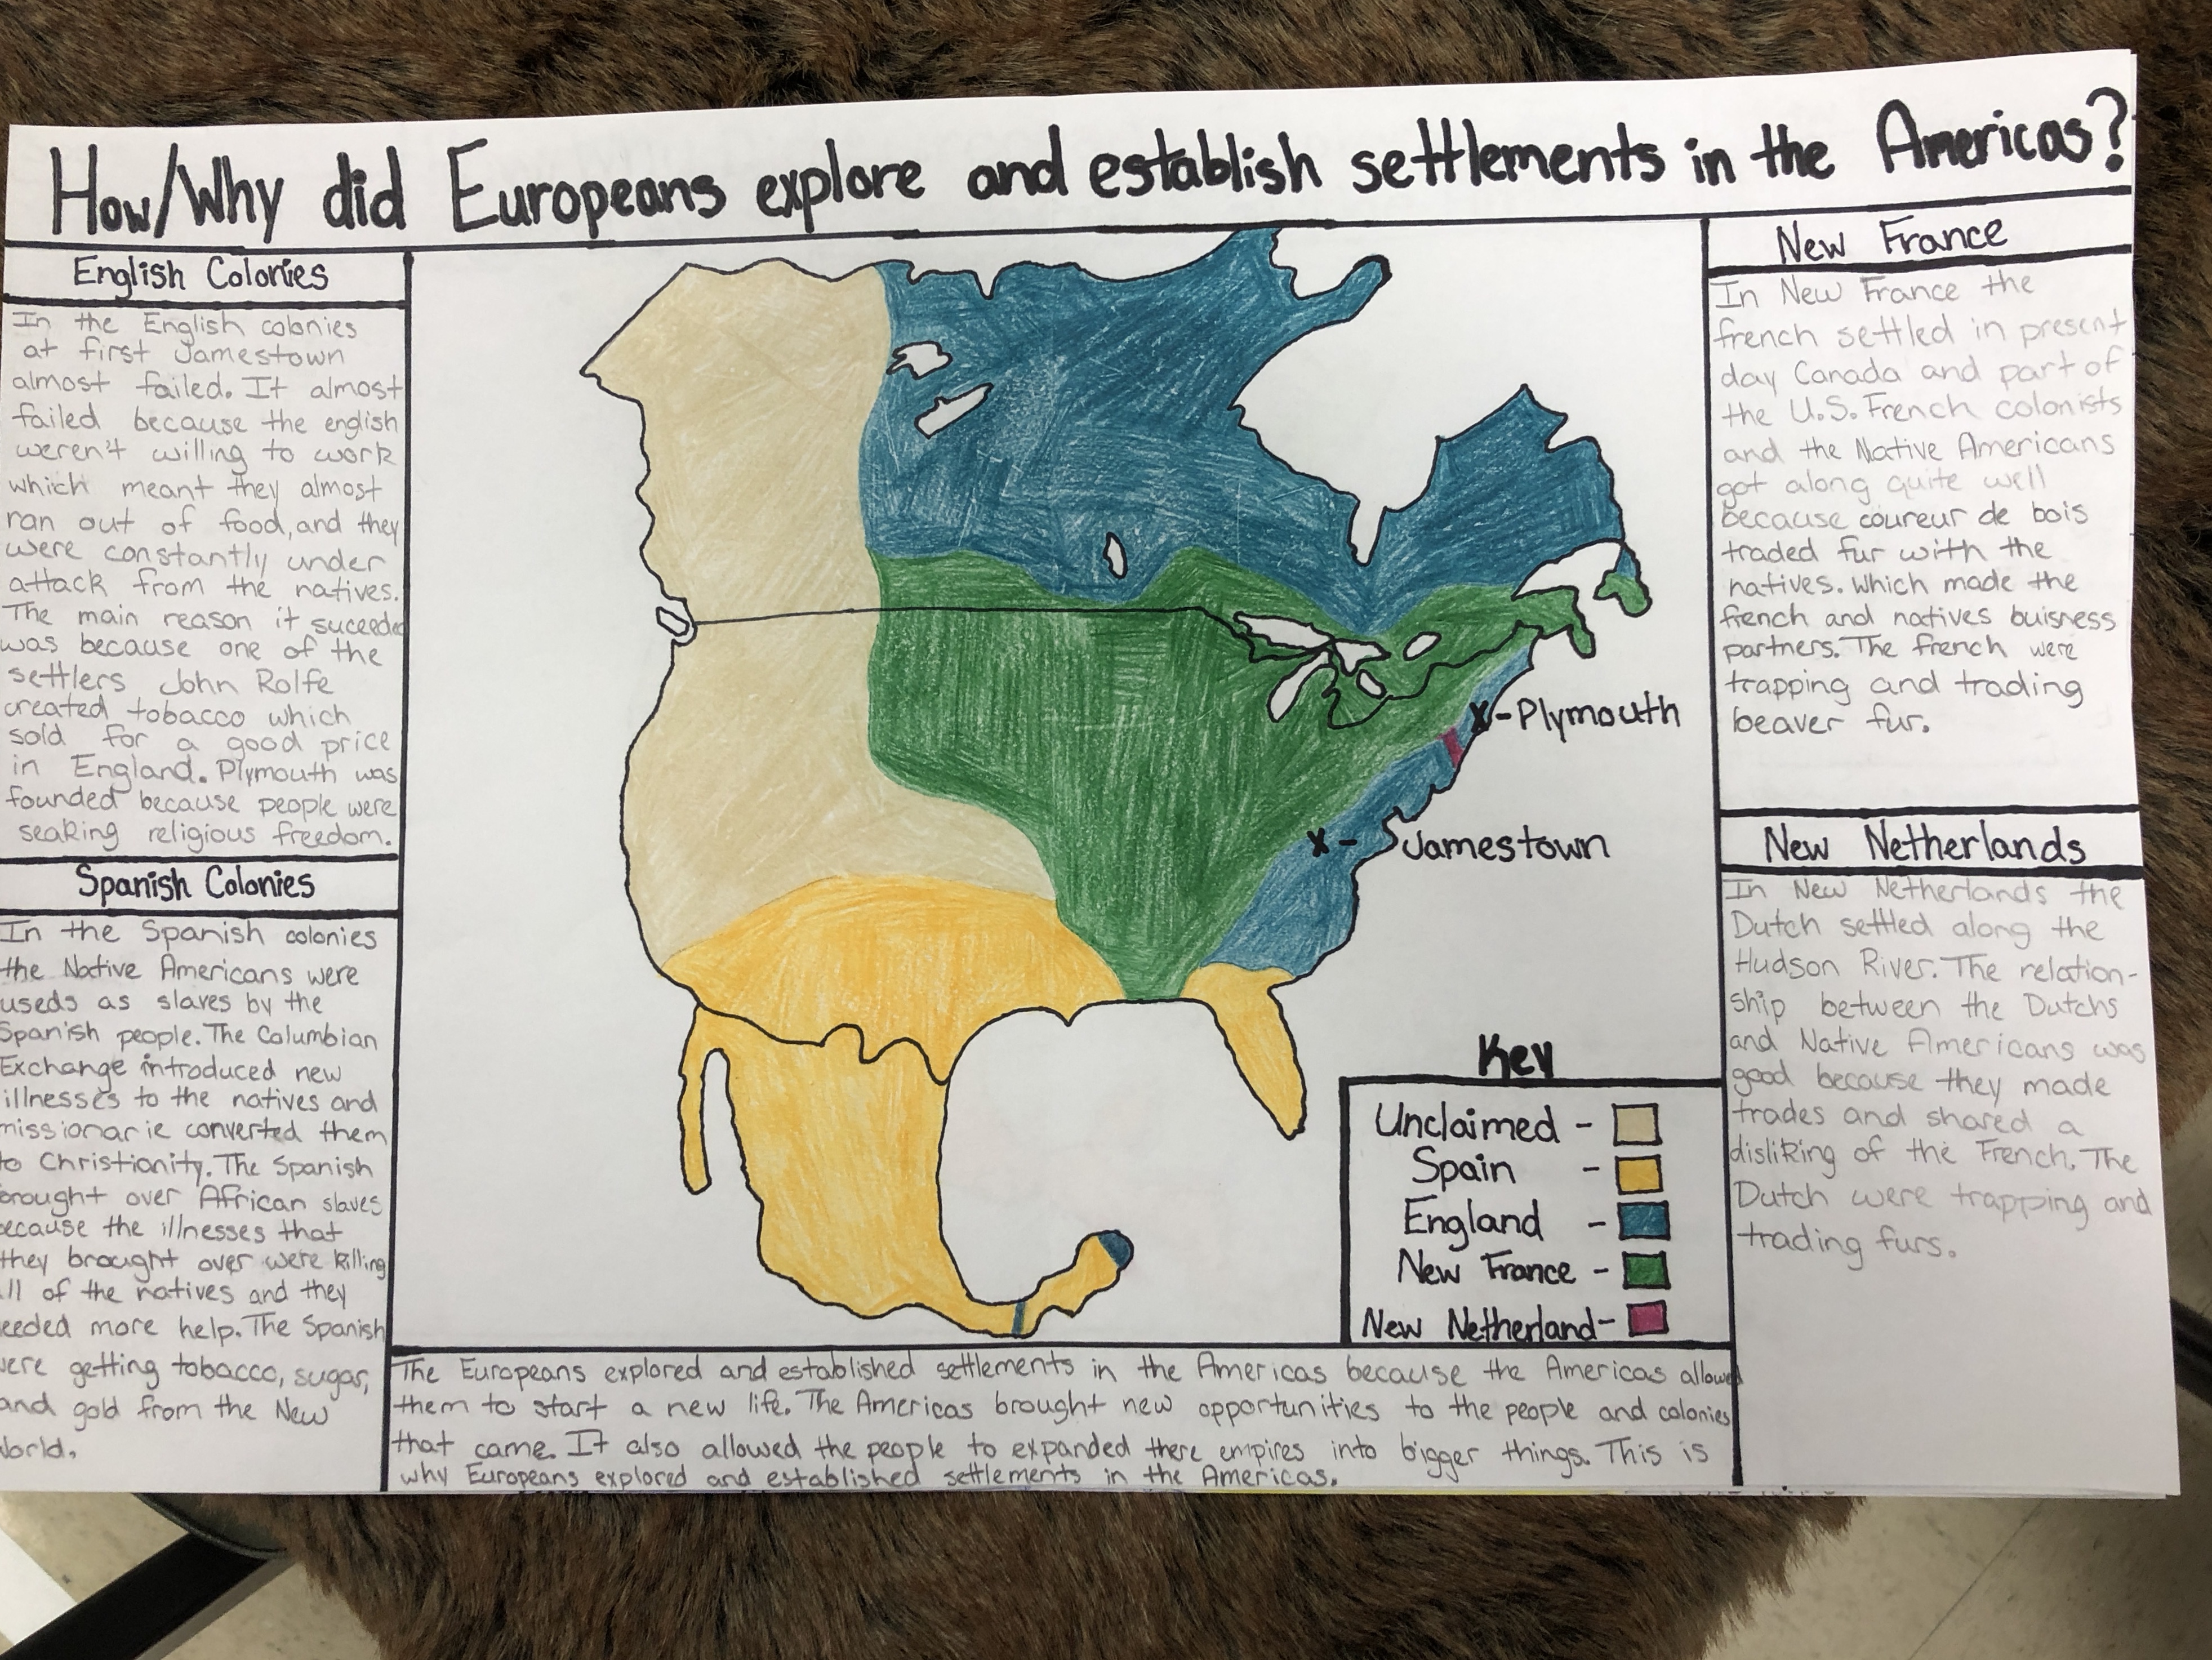 How/Why did Europeans explore and establish settlements in the Americas?
English Colonies
In the English colonies
at first Jamestown
almost failed. It almost
failed because the english
weren't willing to work
which meant they almost
ran out of food, and they
were constantly under
attack from the natives.
The main reason it suceeded
was because one of the
settlers John Rolfe
created tobacco which
sold for a good price
in England. Plymouth was
founded because people were
seaking religious freedom.
Spanish Colonies
In the Spanish colonies
the Native Americans were
useds as slaves by the
Spanish people. The Columbian
Exchange introduced new
illnesses to the natives and
missionarie converted them
to Christianity. The Spanish
brought over African slaves
ecause the illnesses that
they brought over were killing
ll of the natives and they
eeded more help. The Spanish
ere getting tobacco, sugar,
and gold from the New
World.
X-Plymouth
X- Jamestown
Key
Unclaimed -
Spain -
England -
New France -
New Netherland-
The Europeans explored and established settlements in the Americas because the Americas allowed
them to start a new life. The Americas brought new opportunities to the people and colonies
that came. It also allowed the people to expanded there empires into bigger things. This is
why Europeans explored and established settlements in the Americas.
New France
In New France the
french settled in present
day Canada and part of
the U.S. French colonists
and the Native Americans
got along quite well
because coureur de bois
traded fur with the
natives. Which made the
french and natives buisness
partners. The french were
trapping and trading
beaver fur.
New Netherlands
In New Netherlands the
Dutch settled along the
Hudson River. The relation-
ship between the Dutchs
and Native Americans was
good because they made
trades and shared a
disliking of the French. The
Dutch were trapping and
trading furs.